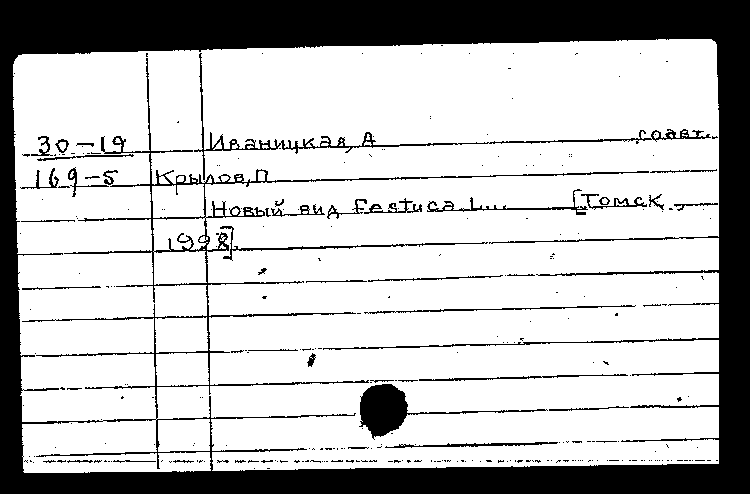 30-19 Иваницкая, А соавт.
169-5 Крылов, П
Новый вид Festuca L... [Томск,
1928].